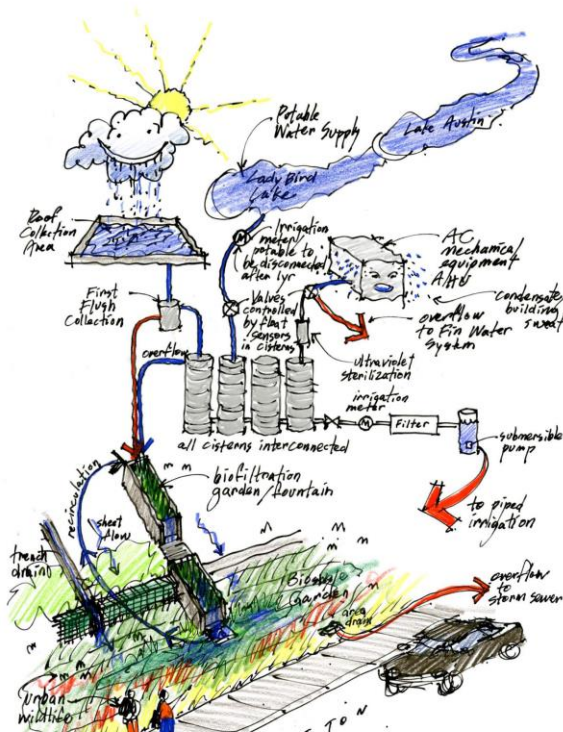 Potable
Water Supply
Late Austin
Lady Bird
Lake
Roof
Collection
Area
Irrigation
meter/
potable to
be disconnected
after 1yr
AC
mechanical
equipment
AHU
condensate
building
sweat
First
Flush
Collection
Valves
controlled
by float
sensors
in cisterns
overflow
to Fin Water
System
overflow
ultraviolet
sterilization
irrigation
meter
Filter
submersible
pump
all cisterns interconnected
biofiltration
garden/fountain
to piped
irrigation
recirculation
sheet
flow
trench
drain
Bioswale
Garden
area
drain
overflow
to
storm sewer
urban
wildlife